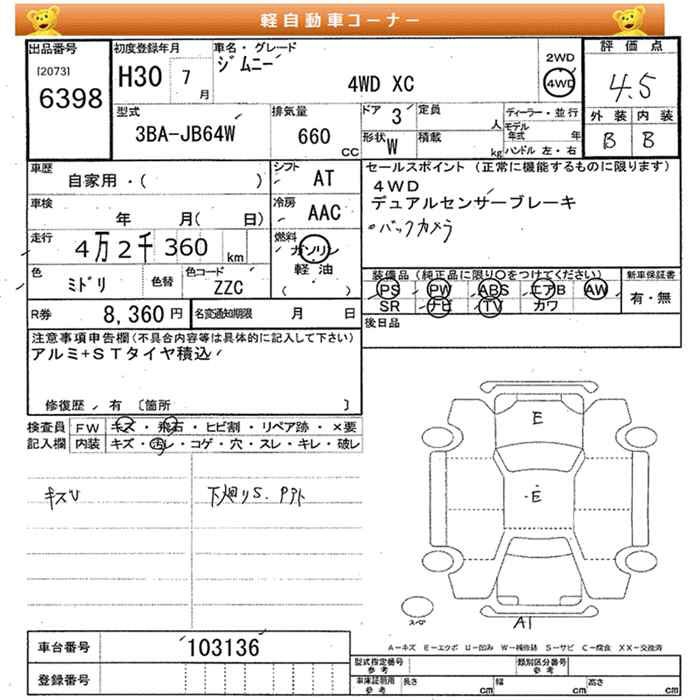 軽自動車コーナー
出品番号 初度登録年月 車名・グレード 評価点
[2073] 6398 H30 7月 ジムニー 4WD XC 2WD 4WD 4.5
型式 排気量 ドア 3 定員 人 ディーラー・並行 外装 内装
3BA-JB64W 660 CC 形状 W 積載 kg モデル年式 年 B B
ハンドル 左・右
車歴 シフト セールスポイント (正常に機能するものに限ります)
自家用・( ) AT 4WD
車検 年 月( 日) 冷房 AAC デュアルセンサーブレーキ
走行 4万2千360km 燃料 ガソリン バックカメラ
軽油
( )
色 ミドリ 色替 色コード ZZC 装備品 (純正品に限り○をつけてください) 新車保証書
PS PW ABS エアB AW 有・無
SR ナビ TV カワ
R券 8,360円 名変通知期限 月 日 後日品
注意事項申告欄(不具合内容等は具体的に記入して下さい)
アルミ+STタイヤ積込
修復歴 有 〔箇所 〕
検査員 FW キズ・飛石・ヒビ割・リペア跡・×要
記入欄 内装 キズ・汚レ・コゲ・穴・スレ・キレ・破レ
キズU 下廻りS.
E
E
スペア
A1
A-キズ E-エクボ U-凹み W-補修跡 S-サビ C-腐食 XX-交換済
車台番号 103136
型式指定番号 参考 類別区分番号 参考
登録番号 車庫証明用 参考 長さ cm 幅 cm 高さ cm